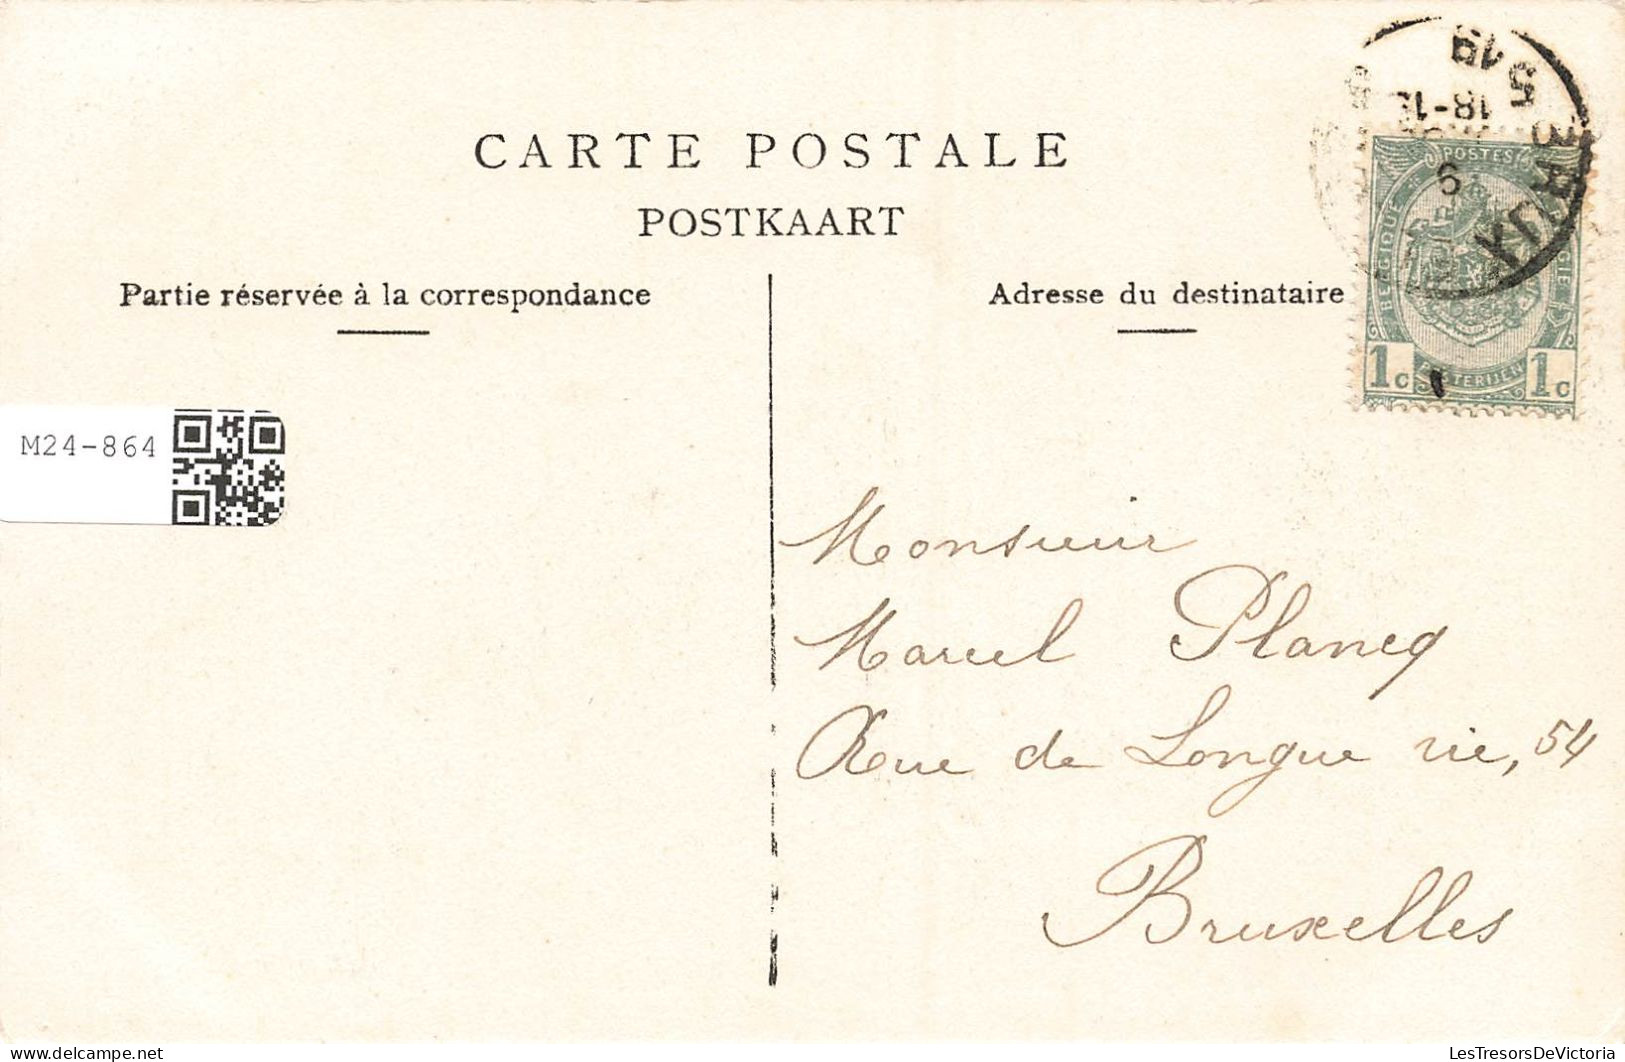 CARTE POSTALE
POSTKAART
Partie réservée à la correspondance
Adresse du destinataire
POSTES
BELGIQUE
1c
POSTERIJEN
1c
18-1
M24-864
Monsieur
Marcel Plancq
Rue de Longue vie, 54
Bruxelles
LesTresorsDeVictoria